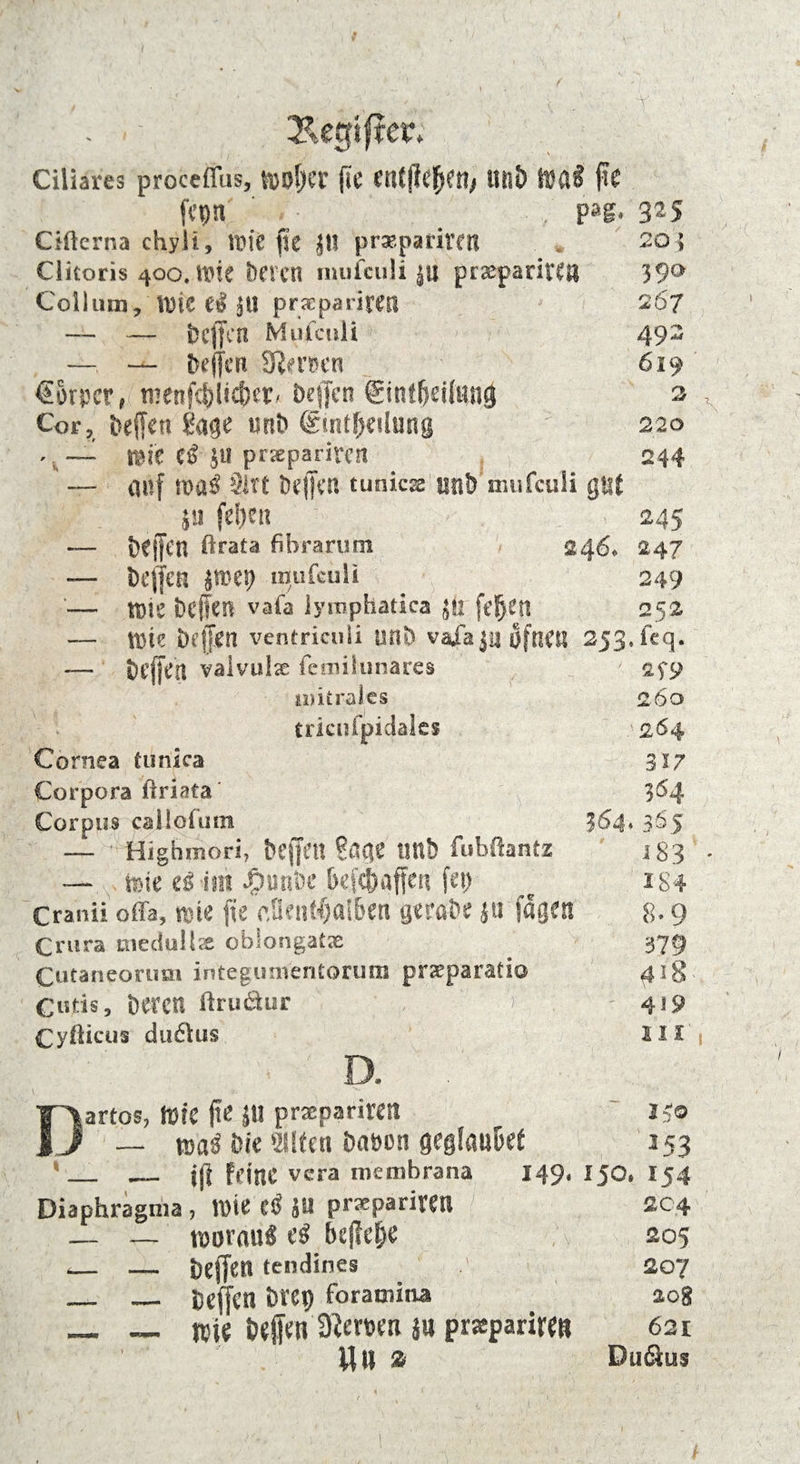 Regiſter.
Ciliares proceſſus, woher ſie entſtehen, und was ſie
ſeyn pag. 325
Ciſterna chyli, wie ſie zu præpariren 203
Clitoris 400. wie deren muſculi zu præpariren 390
Collum, wie es zu præpariren 267
— — deſſen Muſculi 492
— — deſſen Nerven 619
Cörper, menſchlicher, deſſen Eintheilung 2
Cor, deſſen Lage und Eintheilung 220
— wie es zu præpariren 244
— auf was Art deſſen tunicæ und muſculi gut
zu ſehen 245
— deſſen ſtrata fibrarum 246. 247
— deſſen zwey muſculi 249
— wie deſſen vaſa lymphatica zu ſehen 252
— wie deſſen ventriculi und vaſa zu öfnen 253. ſeq.
— deſſen valvulæ ſemilunares 259
mitrales 260
tricuſpidales 264
Cornea tunica 317
Corpora ſtriata 364
Corpus calloſum 364. 365
— Highmori, deſſen Lage und ſubſtantz 183
— wie es im Hunde beſchaffen ſey 184
Cranii oſſa, wie ſie allenthalben gerade zu ſägen 8. 9
Crura medullæ oblongatæ 379
Cutaneorum integumentorum præparatio 418
Cutis, deren ſtructur 419
Cyſticus ductus 111
D.
Dartos, wie ſie zu præpariren 150
— was die Alten davon geglaubet 153
— — iſt keine vera membrana 149. 150. 154
Diaphragma, wie es zu præpariren 204
— — woraus es beſtehe 205
— — deſſen tendines 207
— — deſſen drey foramina 208
— — wie deſſen Nerven zu præpariren 621
Uu 2 Ductus